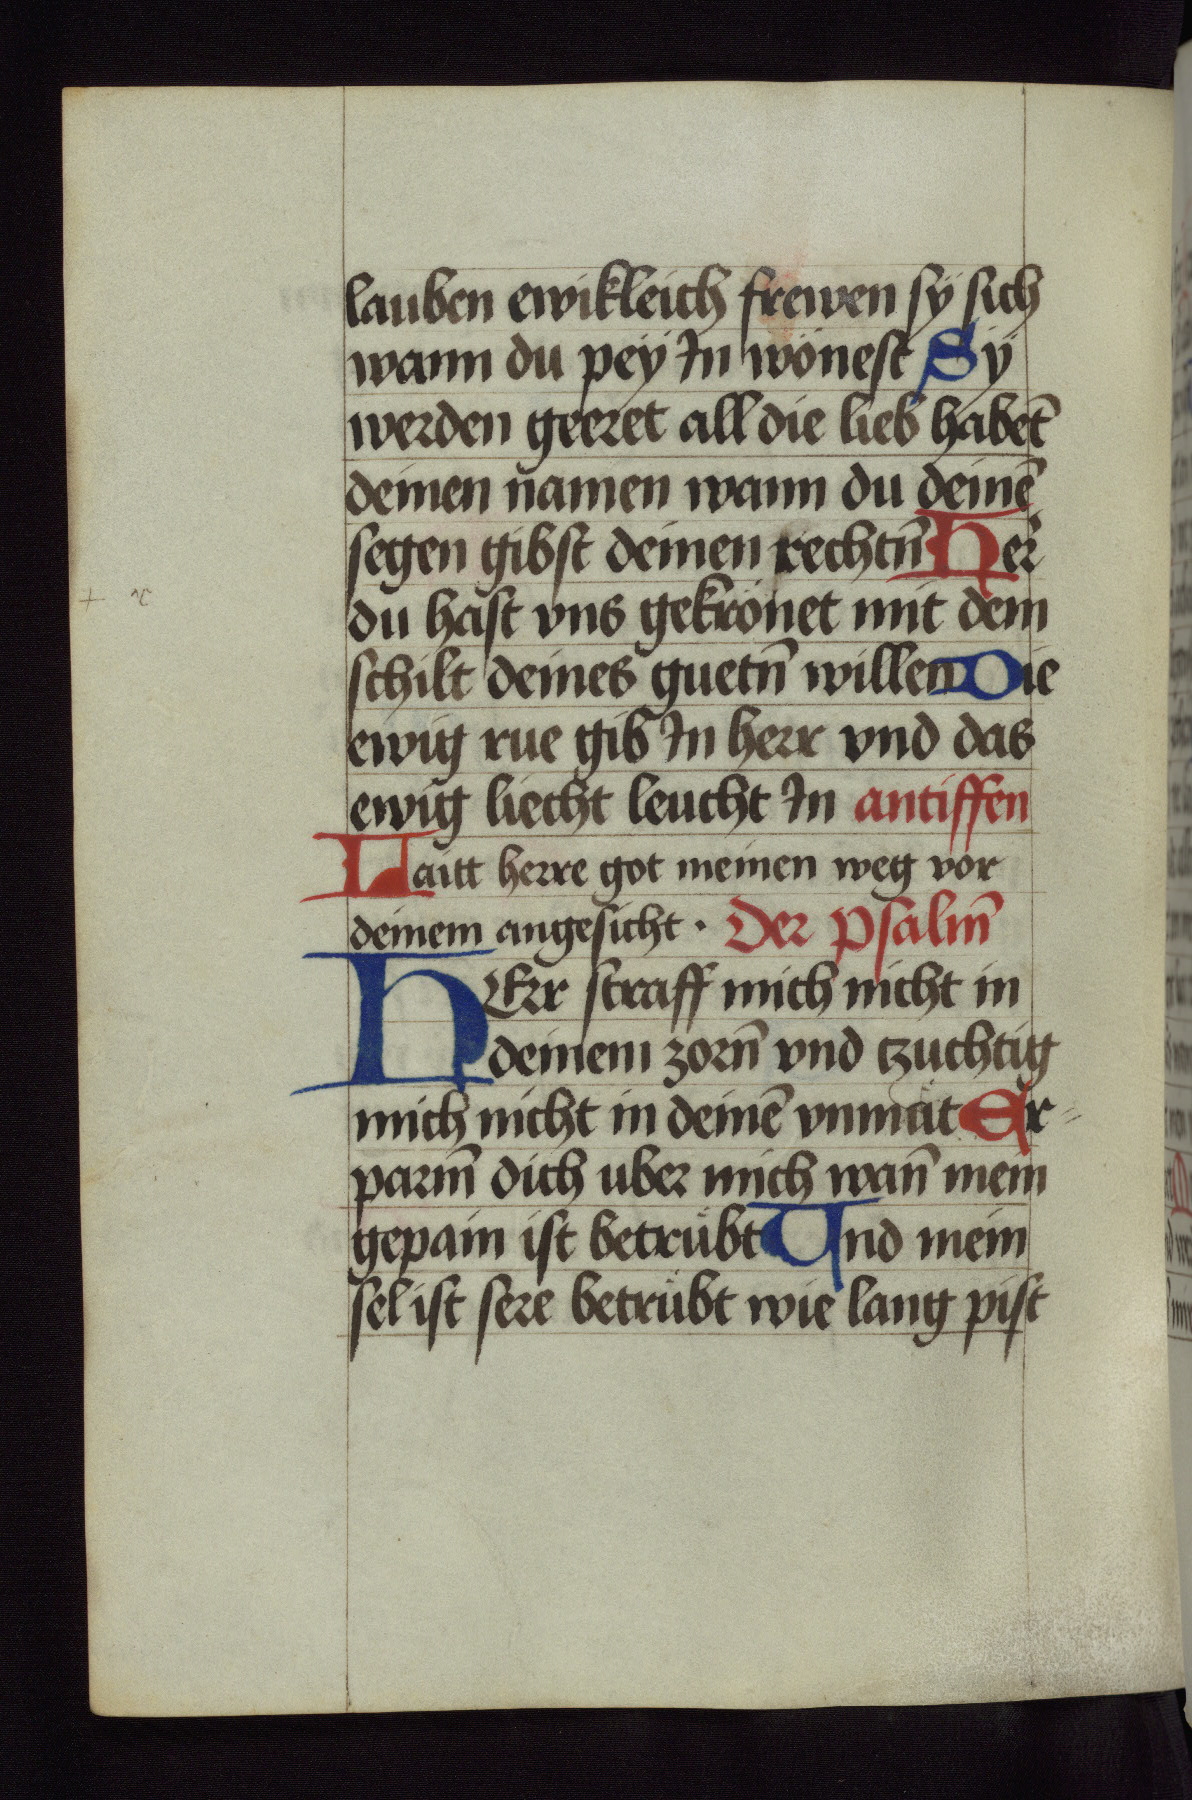 lauben ewikleich frewen sÿ sich
wann du peÿ In wönest Sÿ
werden geeret all die lieb habet̄
deinen namen wann du deinē
segen gibst deinen rechtn̄ Her̄
du hast vns gekrönet mit dem
schilt deines guetn̄ willen Die
ewig rue gib In herr vnd das
ewig liecht leucht In antiffen
Laitt herre got meinen weg vor
deinem angesicht · Der psalm̄
HErr straff mich nicht in
deinem zorn̄ vnd tzuchtig
mich nicht in deinē vnmüt Er=
parm̄ dich uber mich wan̄ mein
gepain ist betrübt Vnd mein
sel ist sere betrübt wie lang pist